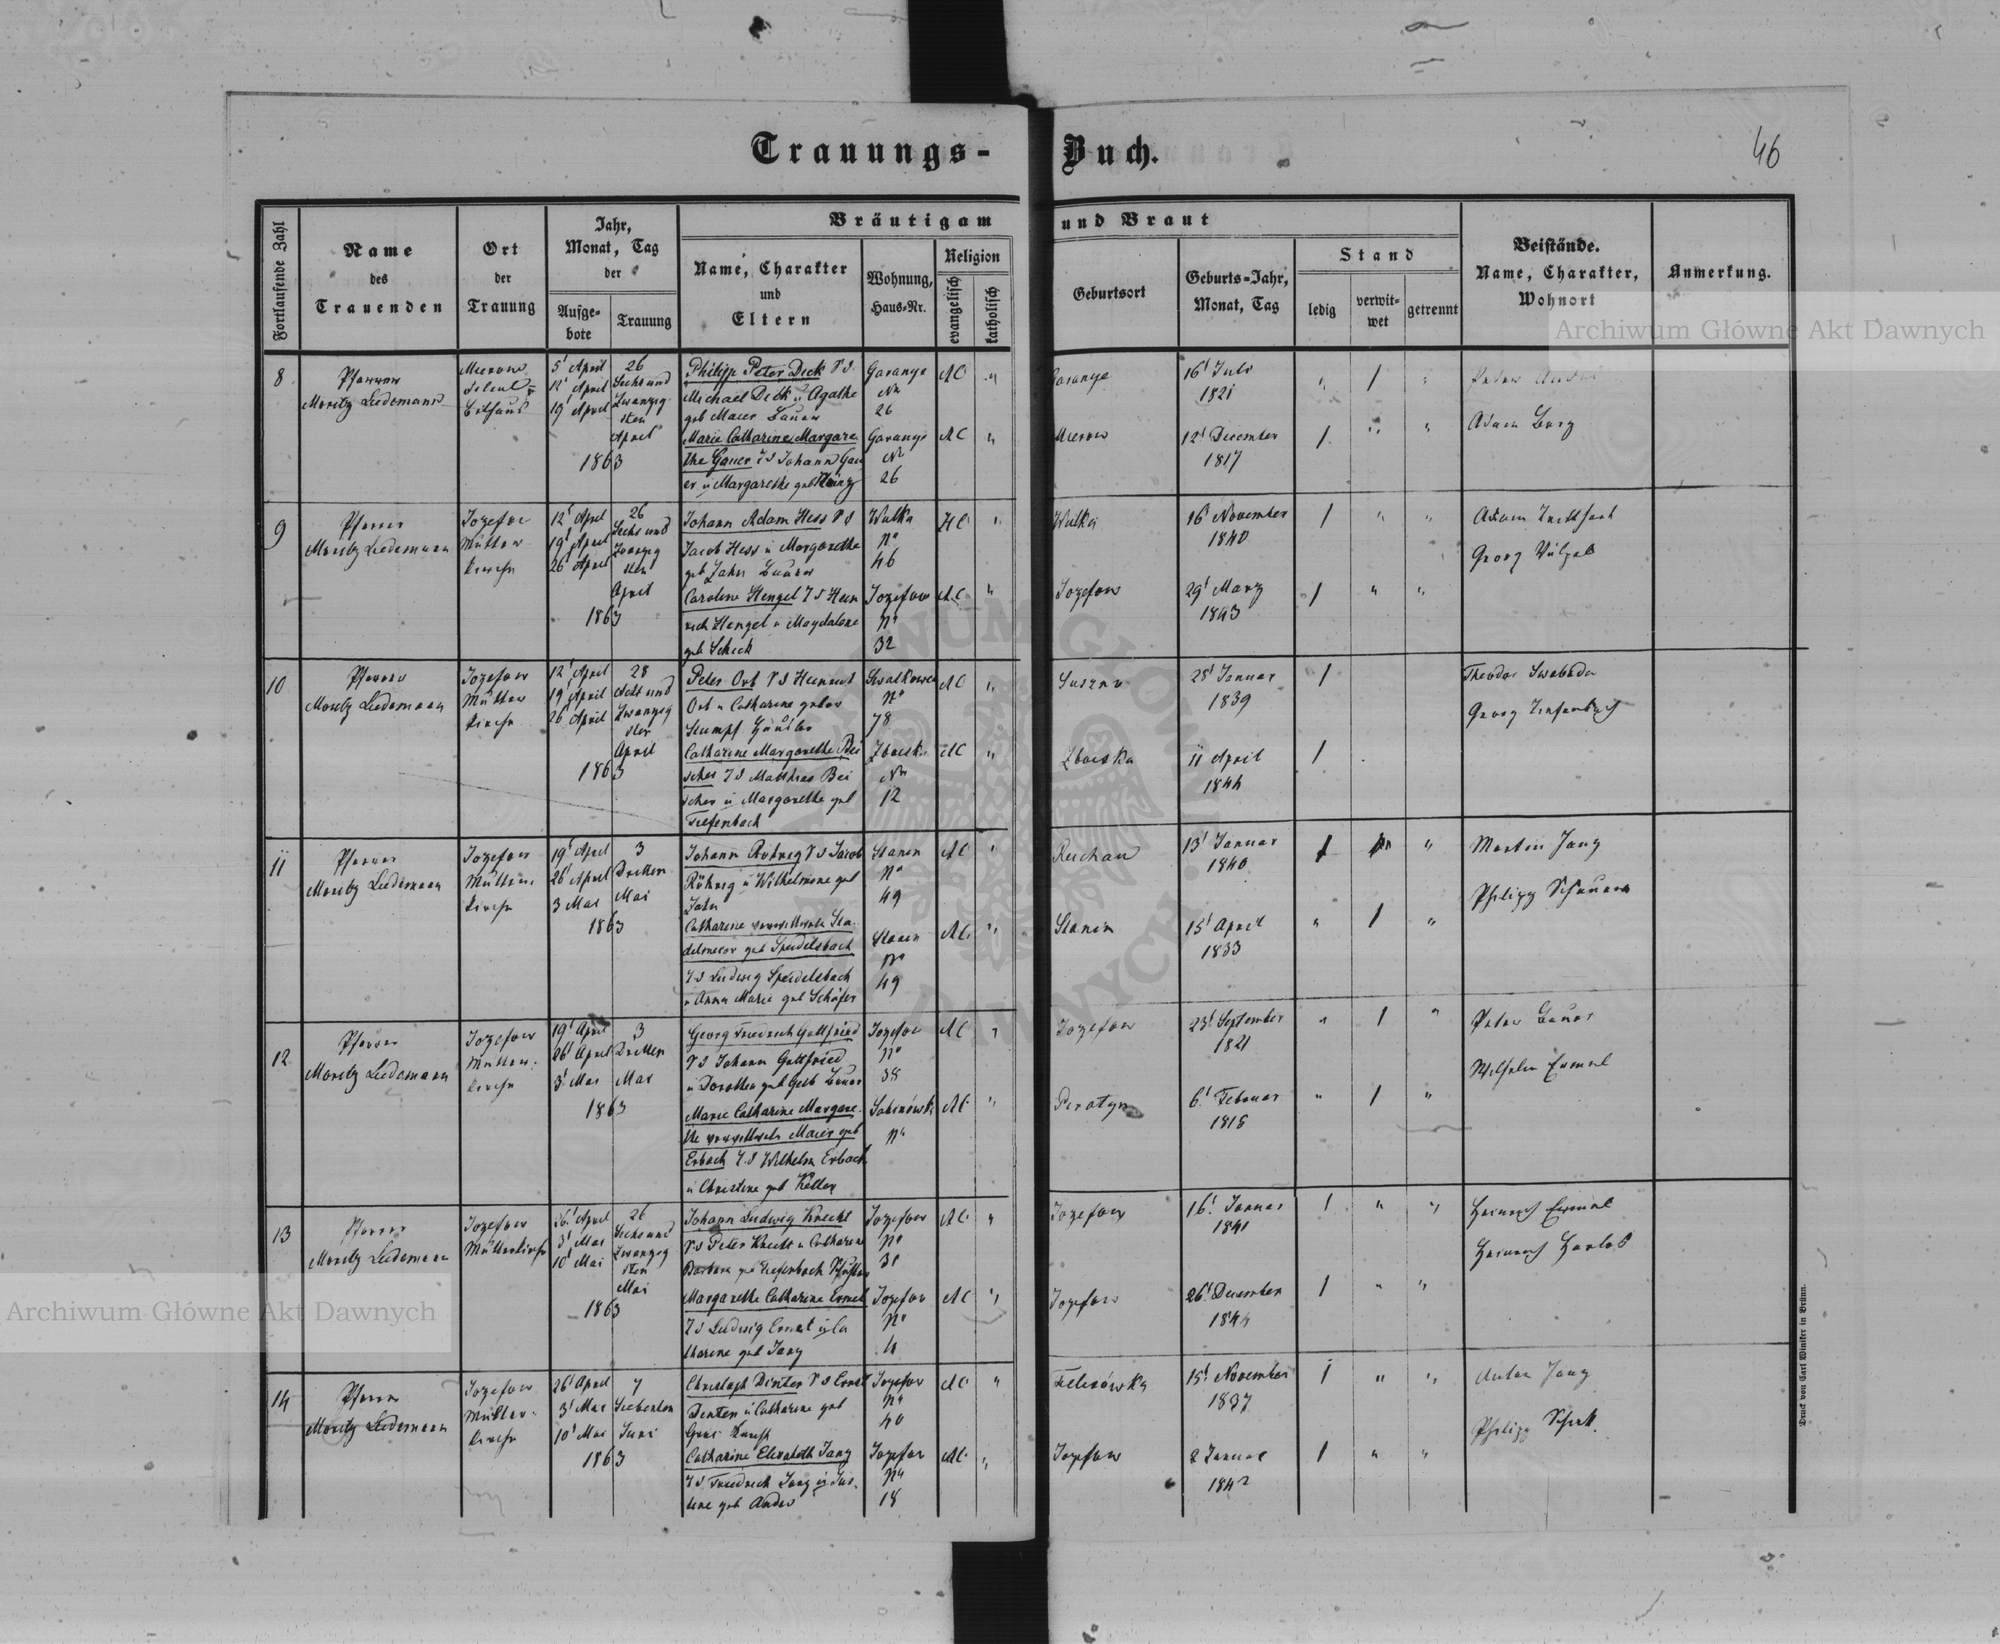 Trauungs-Buch.
46
Fortlaufende Zahl
Name des Trauenden
Ort der Trauung
Jahr, Monat, Tag der
Aufgebote
Trauung
Bräutigam und Braut
Name, Charakter und Eltern
Wohnung, Haus-Nr.
Religion
evangelisch
katholisch
Geburtsort
Geburts-Jahr, Monat, Tag
Stand
ledig
verwitwet
getrennt
Beistände.
Name, Charakter, Wohnort
Anmerkung.
8
Pfarrer
Moritz Ludemann
5t April
12t April
19t April
26
Sechs und
Zwanzig
sten
April
1863
Philipp Peter Deck V S
Michael Deck u Agathe
geb Maier Bauer
Nr
26
AC
16t Juli
1821
Marie Catharine Margare
the Gauer T S Johann Gau
er u Margarethe geb
Nr
26
AC
12t December
1817
Adam Berg
9
Pfarrer
Moritz Ludemann
Jozefow
Mutter
kirche
12t April
19t April
26t April
26
Sechs und
Zwanzig
sten
April
1863
Johann Adam Hess V S
Jacob Hess u Margarethe
geb Jahn Bauer
Wulka
No
46
HC
Wulka
16t November
1840
Adam
Georg
Caroline Hengel T S Hein
rich Hengel u Magdalene
geb Schick
Jozefow
No
32
AC
Jozefow
29t Marz
1843
10
Pfarrer
Moritz Ludemann
Jozefow
Mutter
kirche
12t April
19t April
26t April
28
Acht und
Zwanzig
ster
April
1863
Peter Ort V S Heinrich
Ort u Catharine geborne
Stumpf
No
78
AC
Suszno
28t Januar
1839
Theodor Swoboda
Georg Tiefenbach
Catharine Margarethe Bei
scher T S Matthias Bei
scher u Margarethe geb
Tiefenbach
Zboiska
No
12
AC
Zboiska
11 April
1844
11
Pfarrer
Moritz Ludemann
Jozefow
Mutter
kirche
19t April
26t April
3 Mai
3
Dritten
Mai
1863
Johann Röhrig V S Jacob
Röhrig u Wilhelmine geb
Jahn
Stanin
No
49
AC
Reichau
13t Januar
1840
Martin Jang
Philipp
Catharine verwittwete Sta
delmeier geb Speidelsbach
T S Ludwig Speidelsbach
u Anna Marie geb Schäfer
Stanin
No
49
AC
Stanin
15t April
1833
12
Pfarrer
Moritz Ludemann
Jozefow
Mutter
kirche
19t April
26t April
3t Mai
3
Dritten
Mai
1863
Georg Friedrich Gottfried
V S Johann Gottfried
u Dorothea geb Gelb Bauer
Jozefow
No
38
AC
Jozefow
23t September
1821
Peter Bauer
Wilhelm Ermel
Marie Catharine Margare
the verwittwete Maier geb
Erbach T S Wilhelm Erbach
u Christine geb Keller
No
AC
Peratyn
6t Februar
1818
13
Pfarrer
Moritz Ludemann
Jozefow
Mutterkirche
26t April
3t Mai
10t Mai
26
Sechs und
Zwanzig
sten
Mai
1863
Johann Ludwig Knecht
V S Peter Knecht u Catharine
Barbara geb Tiefenbach
Jozefow
No
31
AC
Jozefow
16t Januar
1841
Heinrich Ermel
Heinrich Harlos
Margarethe Catharine Ermel
T S Ludwig Ermel u Ca
tharine geb Jang
Jozefow
No
4
AC
Jozefow
26t December
1844
14
Pfarrer
Moritz Ludemann
Jozefow
Mutter
kirche
26t April
3t Mai
10t Mai
7
Siebenten
Juni
1863
Christoph Dinter V S Ernst
Dinter u Catharine geb
Jozefow
No
40
AC
Felizówka
15t November
1837
Anton Jang
Philipp Schick
Catharine Elisabeth Jang
T S Friedrich Jang u Jus
tine geb Andre
Jozefow
No
18
AC
Jozefow
2 Januar
1842
Druck von Carl Winiker in Brünn.
Archiwum Główne Akt Dawnych
Archiwum Główne Akt Dawnych
ARCHIWUM GŁÓWNE AKT DAWNYCH